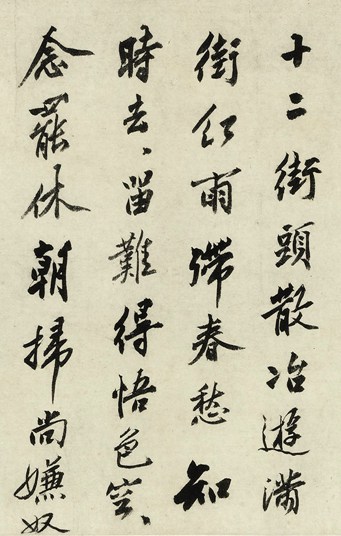 十二街頭散冶遊滿
街紅雨殢春愁知
時去、留難得悟色空、
念罷休朝掃尚嫌奴